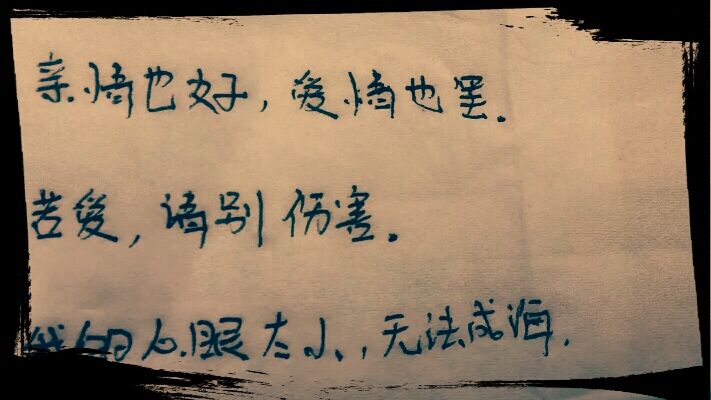 亲情也好，爱情也罢。
若爱，请别伤害。
我的心眼太小，无法成海.